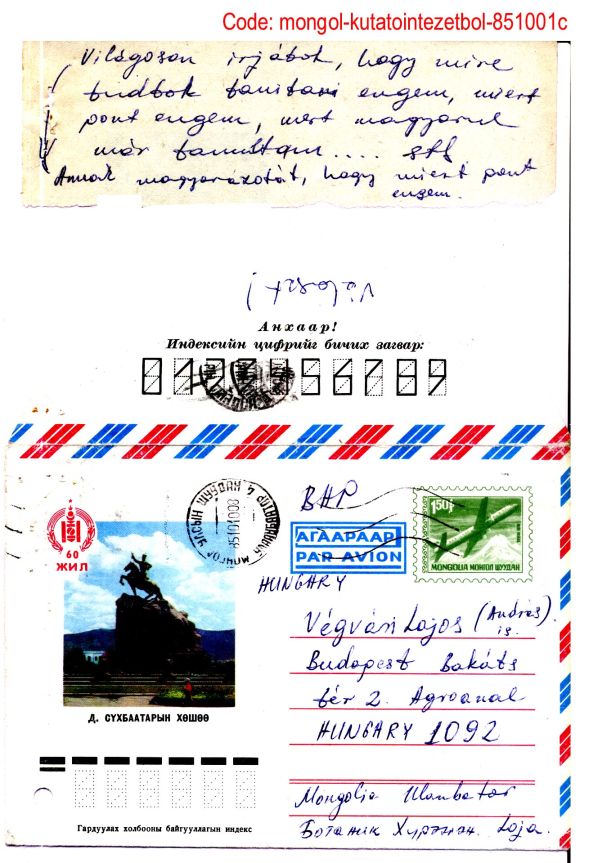 Code: mongol-kutatointezetbol-851001c
Világosan irjátok, hogy mire
tudtok tanitani engem, miert
pont engem, mert magyarul
már tanultam.... stb
Annak magyarázatát, hogy miert pont
engem.
Анхаар!
Индексийн цифрийг бичих загвар:
0123456789
60
ЖИЛ
МОНГОЛ УЛСЫН ШУУДАН
851001
ВНР
АГААРААР
PAR AVION
1.50₮
MONGOLIA МОНГОЛ ШУУДАН
HUNGARY
Végvári Lajos (András)
is.
Budapest Bakáts
tér 2. Agroanal
HUNGARY 1092
Д. СҮХБААТАРЫН ХӨШӨӨ
Mongolia Ulanbator
Ботаник Хүрээлэн. Loja.
Гардуулах холбооны байгууллагын индекс